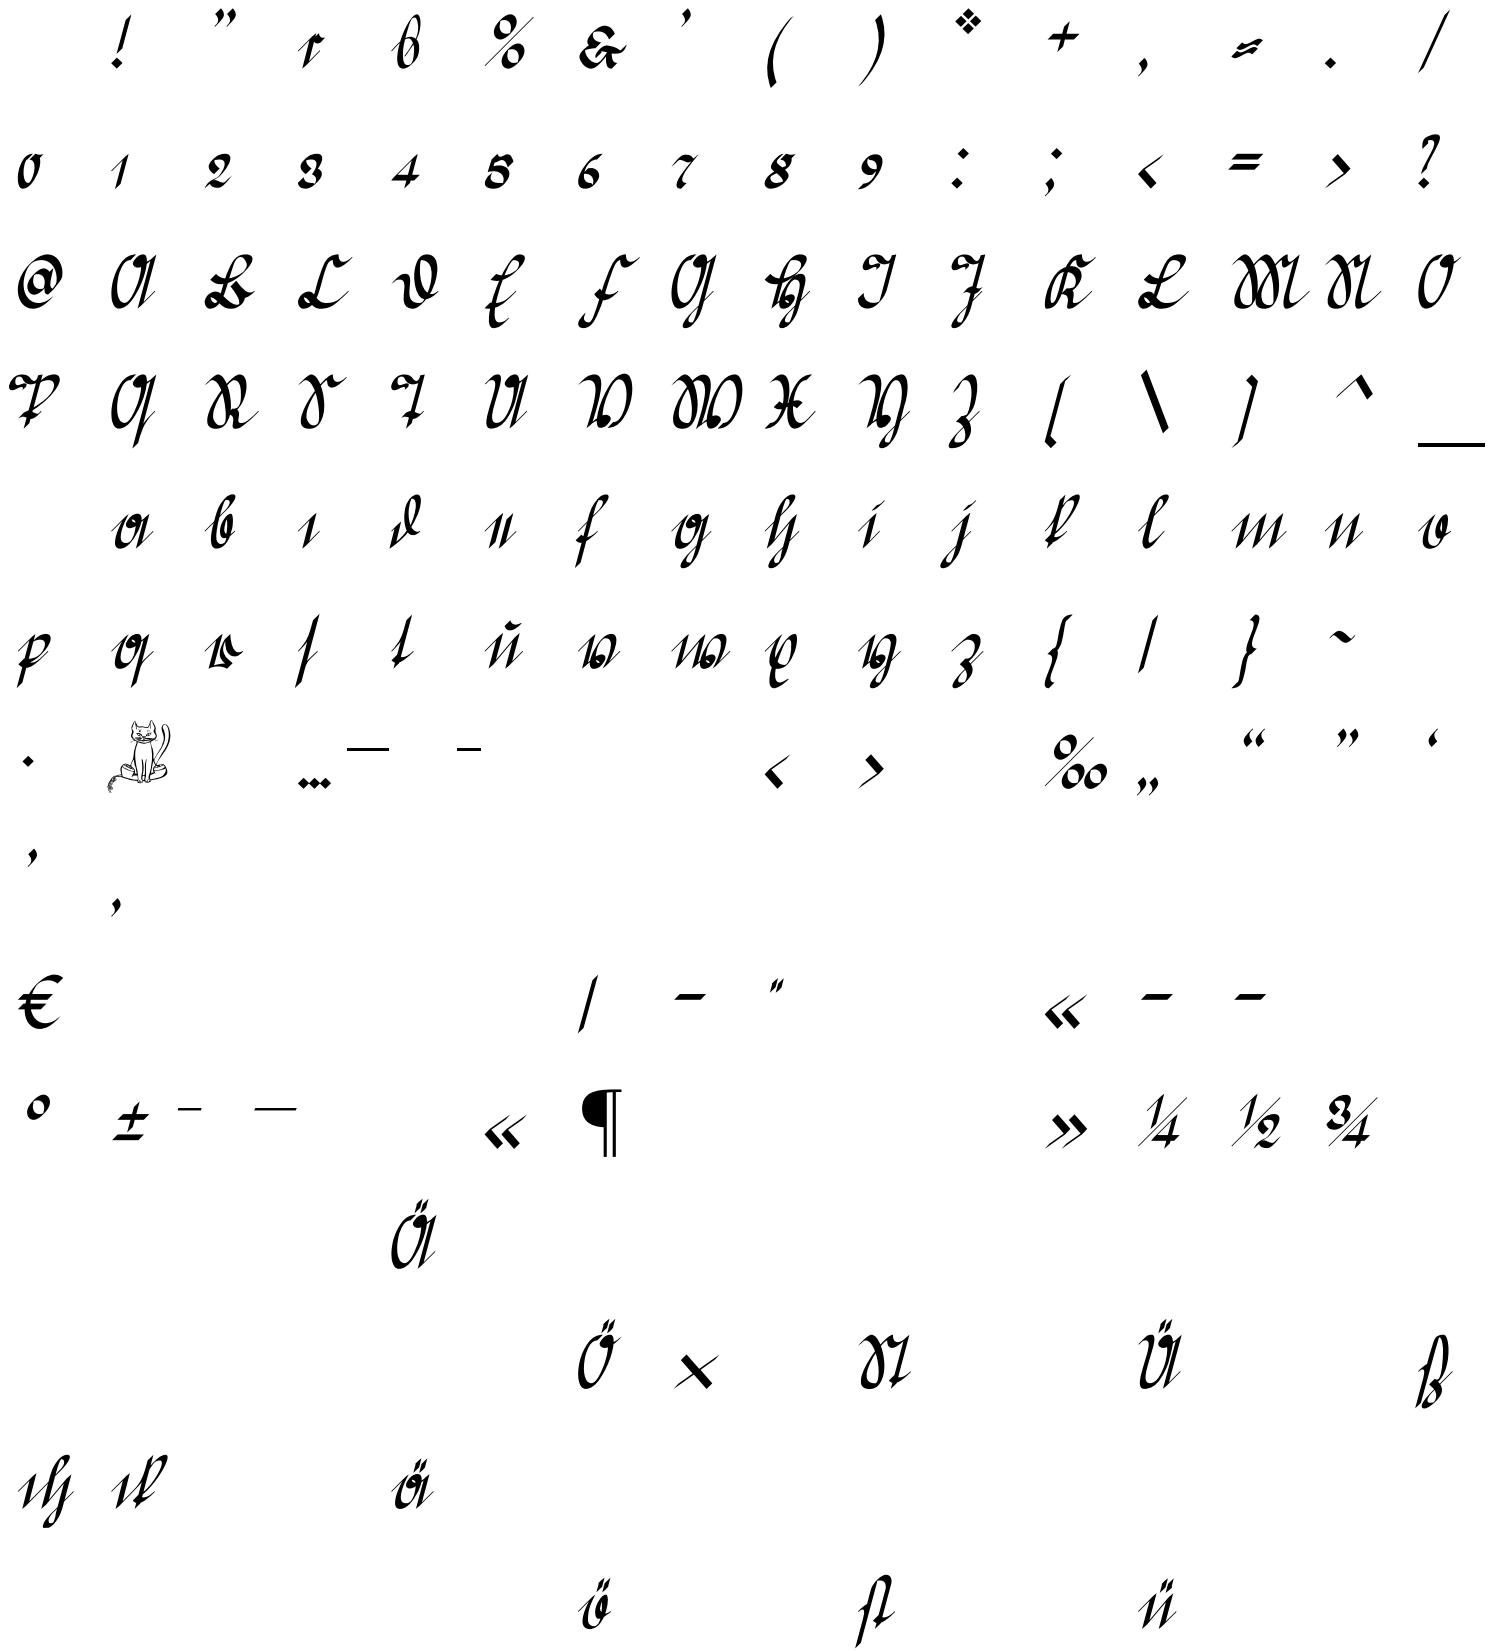 ! ” r s % & ’ ( ) ❖ + , = . /
0 1 2 3 4 5 6 7 8 9 : ; < = > ?
@ A B C D E F G H I J K L M N O
P Q R S T U V W X Y Z [ \ ] ^ _
a b c d e f g h i j k l m n o
p q r ſ t u v w x y z { | } ~
· … — – ‹ › ‰ „ “ ” ‘
’
‚
€ / - " « - -
° ± – — « ¶ » ¼ ½ ¾
Ä
Ö × St Ü ß
ch ck ä
ö ſt ü